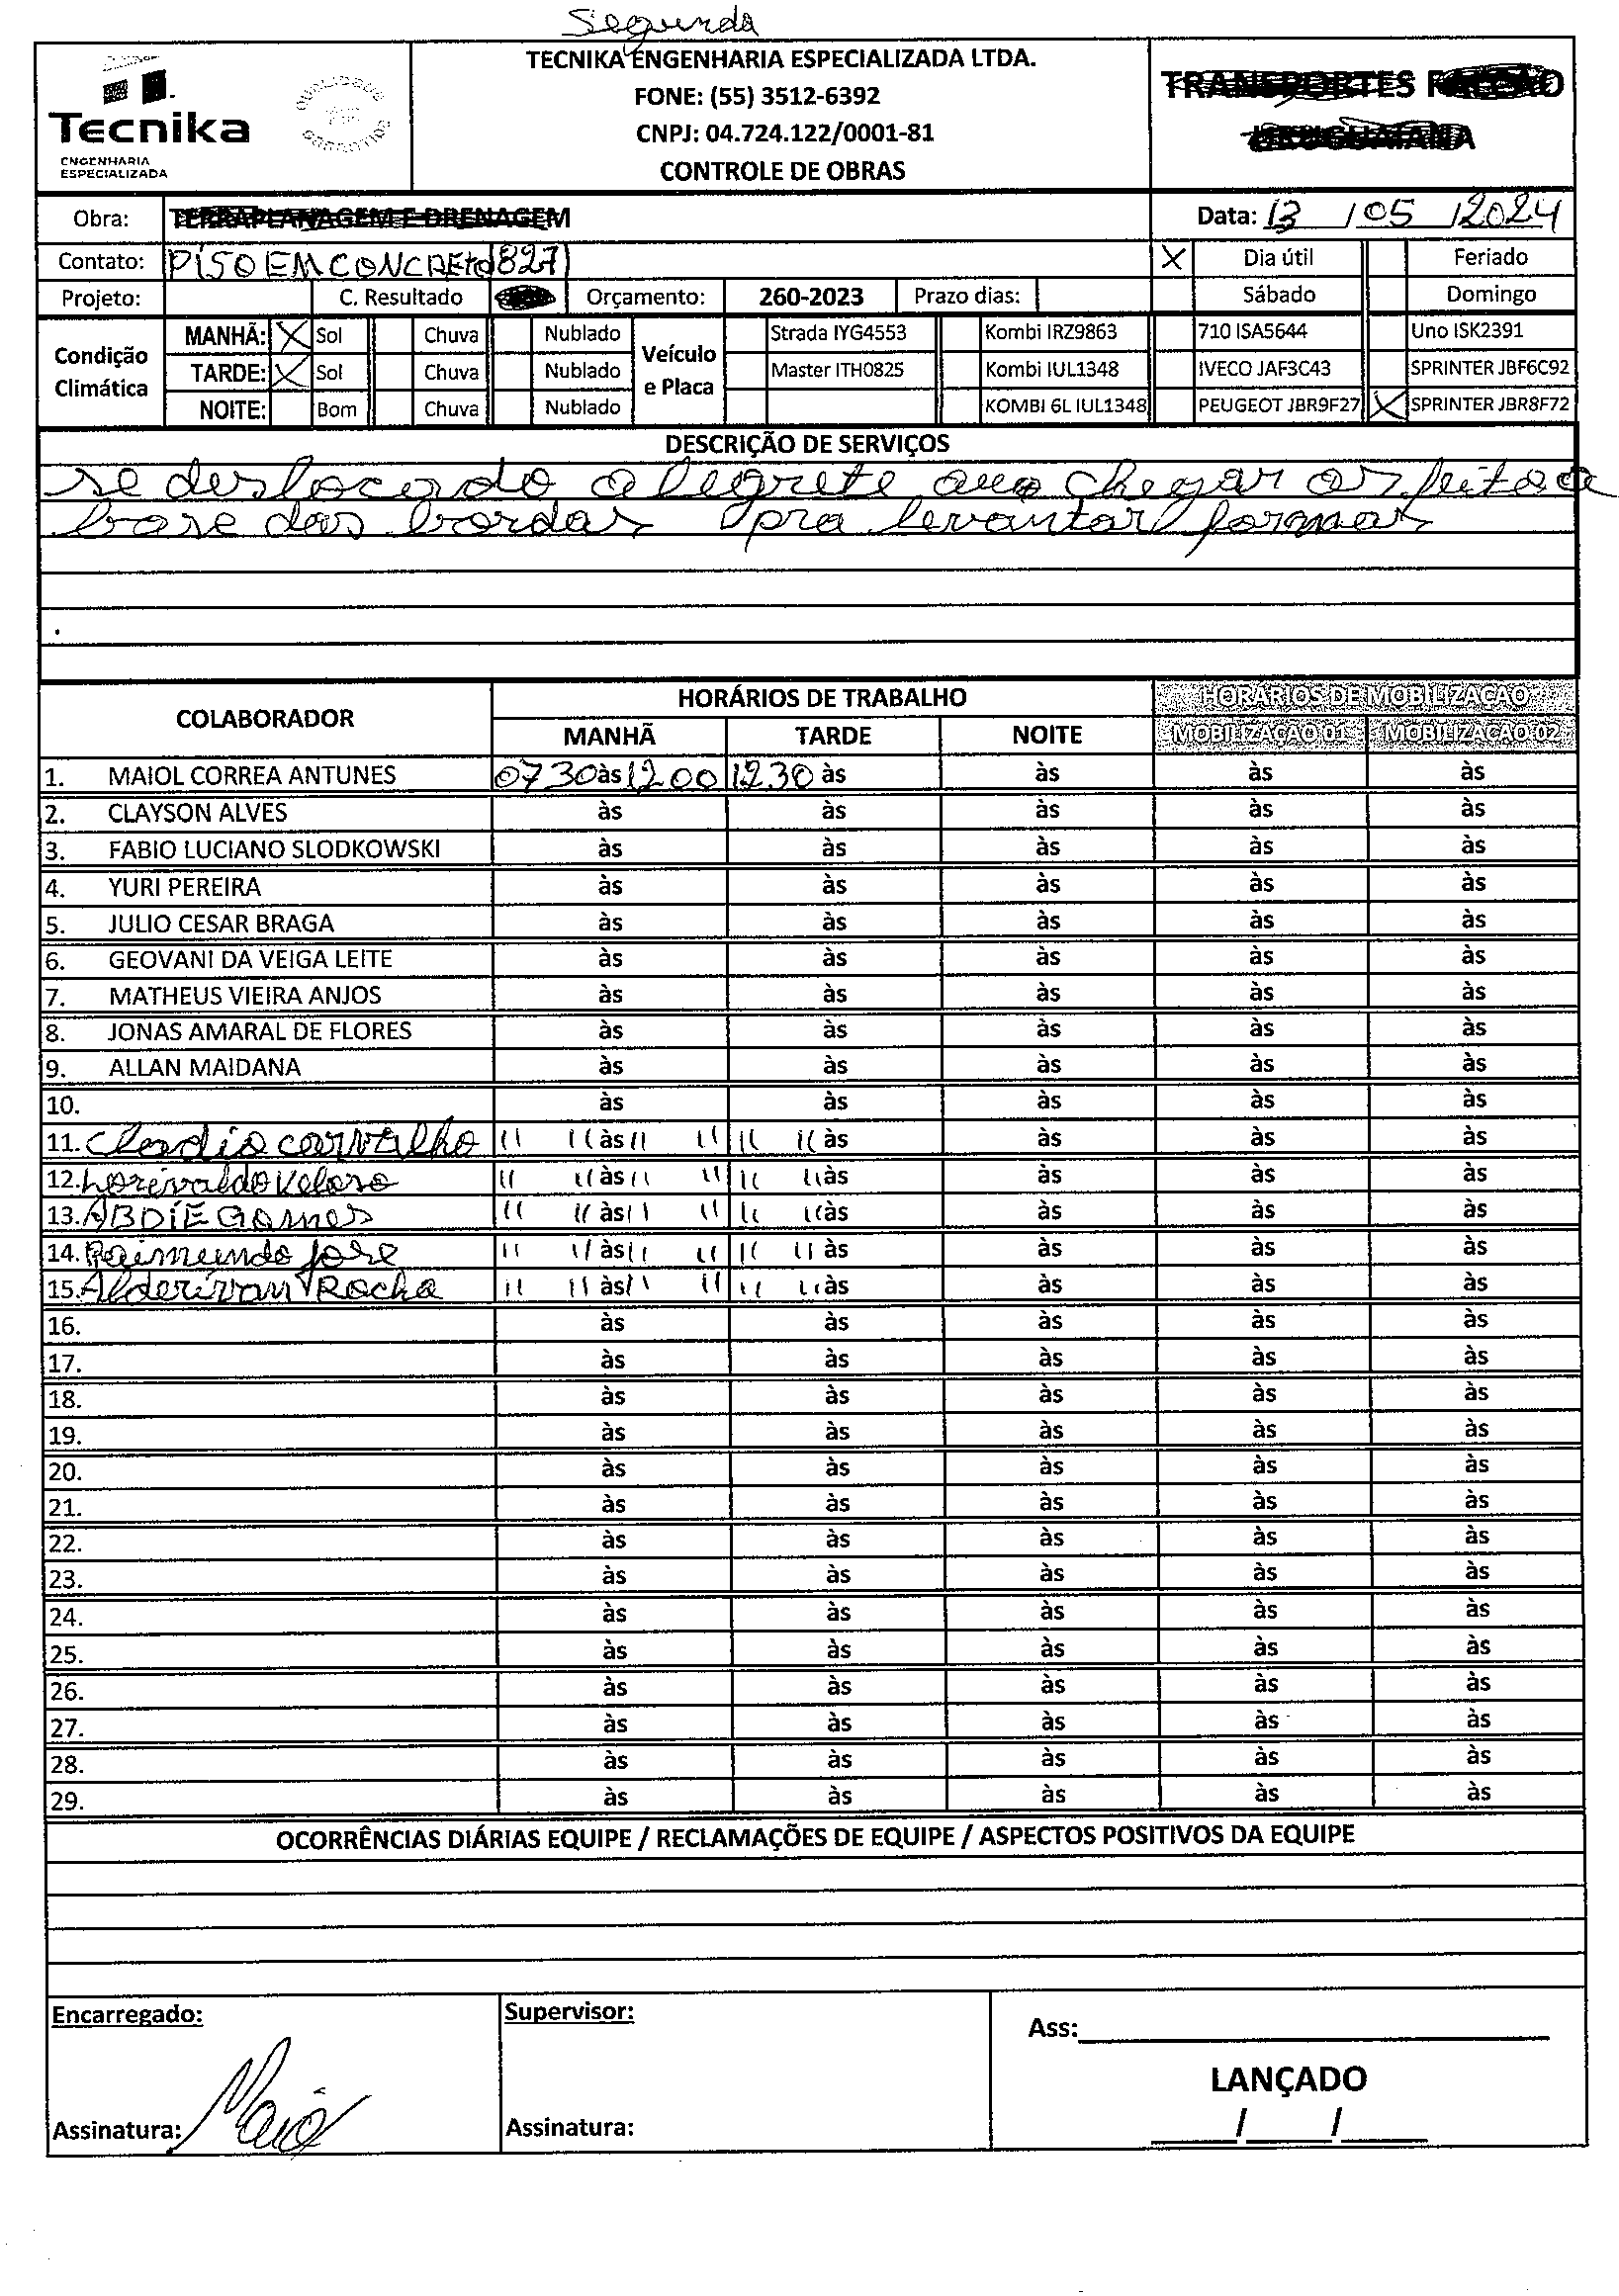 Segunda
Tecnika
ENGENHARIA
ESPECIALIZADA
TECNIKA ENGENHARIA ESPECIALIZADA LTDA.
FONE: (55) 3512-6392
CNPJ: 04.724.122/0001-81
CONTROLE DE OBRAS
TRANSPORTES
URUGUAIANA
Obra: TERRAPLANAGEM E DRENAGEM Data: 13 / 05 / 2024
Contato: PISO EM CONCRETO 827 X Dia útil Feriado
Projeto: C. Resultado Orçamento: 260-2023 Prazo dias: Sábado Domingo
Condição Climática
MANHÃ: X Sol Chuva Nublado
TARDE: X Sol Chuva Nublado
NOITE: Bom Chuva Nublado
Veículo e Placa
Strada IYG4553 Kombi IRZ9863 710 ISA5644 Uno ISK2391
Master ITH0825 Kombi IUL1348 IVECO JAF3C43 SPRINTER JBF6C92
KOMBI 6L IUL1348 PEUGEOT JBR9F27 X SPRINTER JBR8F72
DESCRIÇÃO DE SERVIÇOS
se deslocardo alegrete chegar feito a
base das bordas pra levantar formas
COLABORADOR HORÁRIOS DE TRABALHO HORÁRIOS DE MOBILIZAÇÃO
MANHÃ TARDE NOITE MOBILIZAÇÃO 01 MOBILIZAÇÃO 02
1. MAIOL CORREA ANTUNES 07 30 às 12 00 12.30 às às às às
2. CLAYSON ALVES às às às às às
3. FABIO LUCIANO SLODKOWSKI às às às às às
4. YURI PEREIRA às às às às às
5. JULIO CESAR BRAGA às às às às às
6. GEOVANI DA VEIGA LEITE às às às às às
7. MATHEUS VIEIRA ANJOS às às às às às
8. JONAS AMARAL DE FLORES às às às às às
9. ALLAN MAIDANA às às às às às
10. às às às às às
11. Clodio carvalho " " às " " " " às às às às
12. Lorivaldo Veloso " " às " " " " às às às às
13. ABDIE Gomes " " às " " " " às às às às
14. Raimundo José " " às " " " " às às às às
15. Alderivan Rocha " " às " " " " às às às às
16. às às às às às
17. às às às às às
18. às às às às às
19. às às às às às
20. às às às às às
21. às às às às às
22. às às às às às
23. às às às às às
24. às às às às às
25. às às às às às
2626. às às às às às
27. às às às às às
2828. às às às às às
29. às às às às às
OCORRÊNCIAS DIÁRIAS EQUIPE / RECLAMAÇÕES DE EQUIPE / ASPECTOS POSITIVOS DA EQUIPE
Encarregado: Supervisor: Ass:
LANÇADO
Assinatura: Maio Assinatura: / /